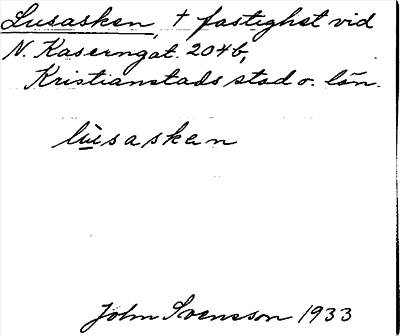 Lusasken, † fastighet vid
N. Kaserngat. 204 b,
Kristianstads stad o. län.
lu̇sasken
John Svensson 1933